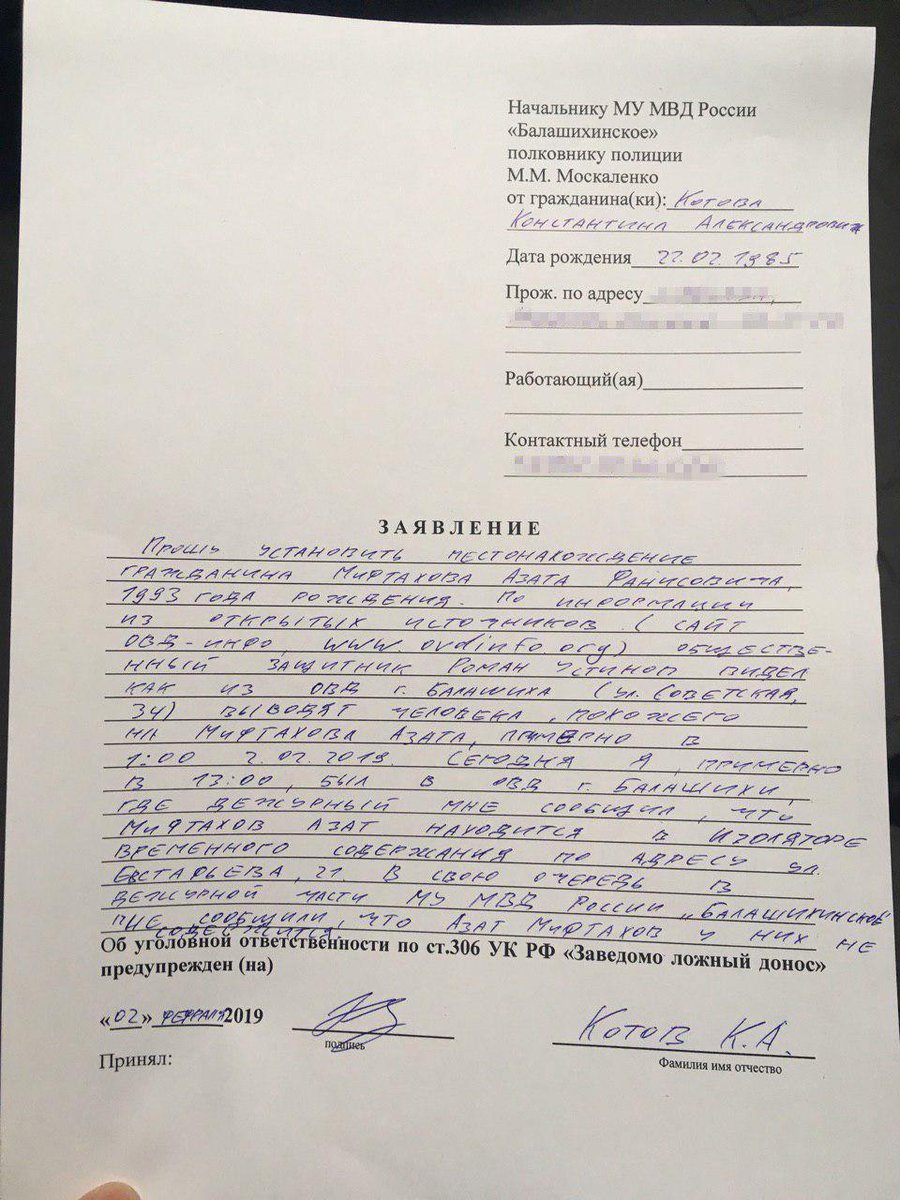 Начальнику МУ МВД России
«Балашихинское»
полковнику полиции
М.М. Москаленко
от гражданина(ки): Котова
Константина Александрович
Дата рождения 22.02.1985
Прож. по адресу
Работающий(ая)
Контактный телефон
ЗАЯВЛЕНИЕ
Прошу установить местонахождение
гражданина Мифтахова Азата Фанисовича,
1993 года рождения. По информации
из открытых источников (сайт
ОВД-инфо, www.ovdinfo.org) обществе-
нный защитник Роман Устинов видел
как из ОВД г. Балашиха (ул. Советская,
34) выводят человека, похожего
на Мифтахова Азата, примерно в
1:00 2.02.2019. Сегодня я, примерно
в 13:00, был в ОВД г. Балашихи,
где дежурный мне сообщил, что
Мифтахов Азат находится в Изоляторе
временного содержания по адресу ул.
Евстафьева, 21. В свою очередь в
дежурной части МУ МВД России „Балашихинское"
мне сообщили, что Азат Мифтахов у них не
содержится.
Об уголовной ответственности по ст.306 УК РФ «Заведомо ложный донос»
предупрежден (на)
«02» февраля 2019
Котов К.А.
подпись
Фамилия имя отчество
Принял: